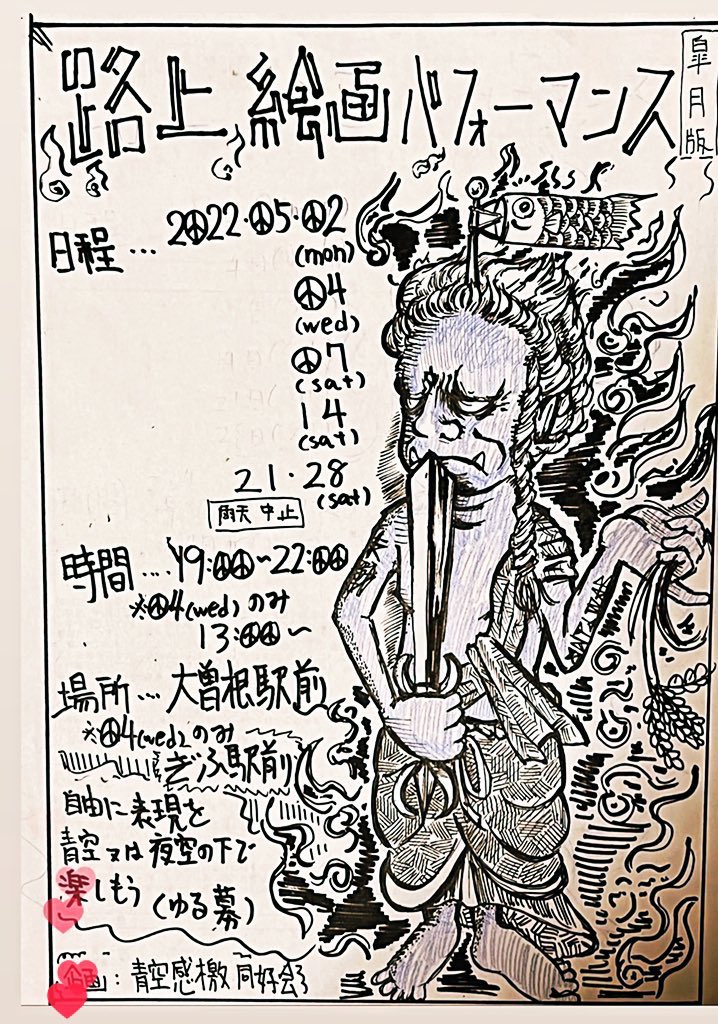 皐月版
路上絵画パフォーマンス
日程… 2022・05・02
(mon)
04
(wed)
07
(sat)
14
(sat)
21・28
(sat)
雨天中止
時間… 19:00~22:00
※04(wed)のみ
13:00~
場所… 大曽根駅前
※04(wed)のみ
ぎふ駅前
自由に表現を
青空又は夜空の下で
楽しもう (ゆる募)
企画:青空感檄同好会